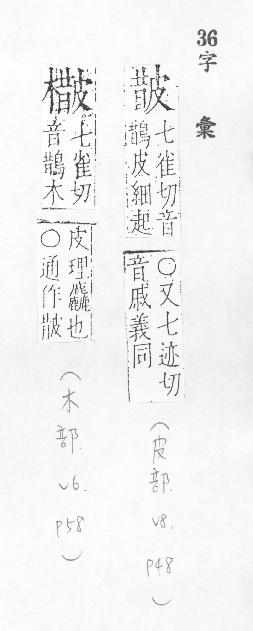 36字 彙
皵
七雀切音
鵲皮細起
○又七迹切
音戚義同
(皮部. v8. p48)
七雀切
音鵲木
皮理麤也
○通作皵
(木部. v6. p58)